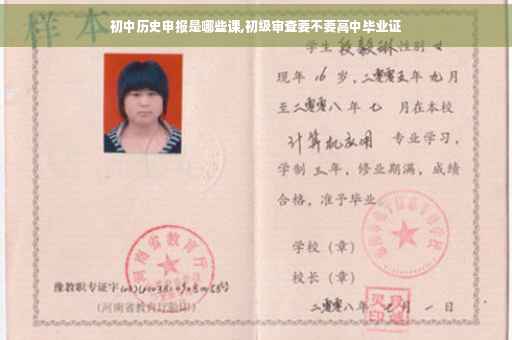 初中历史申报是哪些课,初级审查要不要高中毕业证
样本
学生段毅琳性别女
现年16岁,二零零五年九月
至二零零八年七月在本校
计算机应用专业学习,
学制三年,修业期满,成绩
合格,准予毕业
学校(章)
校长(章)
二零零八年 月一日
河南省教育厅
豫教职专证字
(河南省教育厅验印)